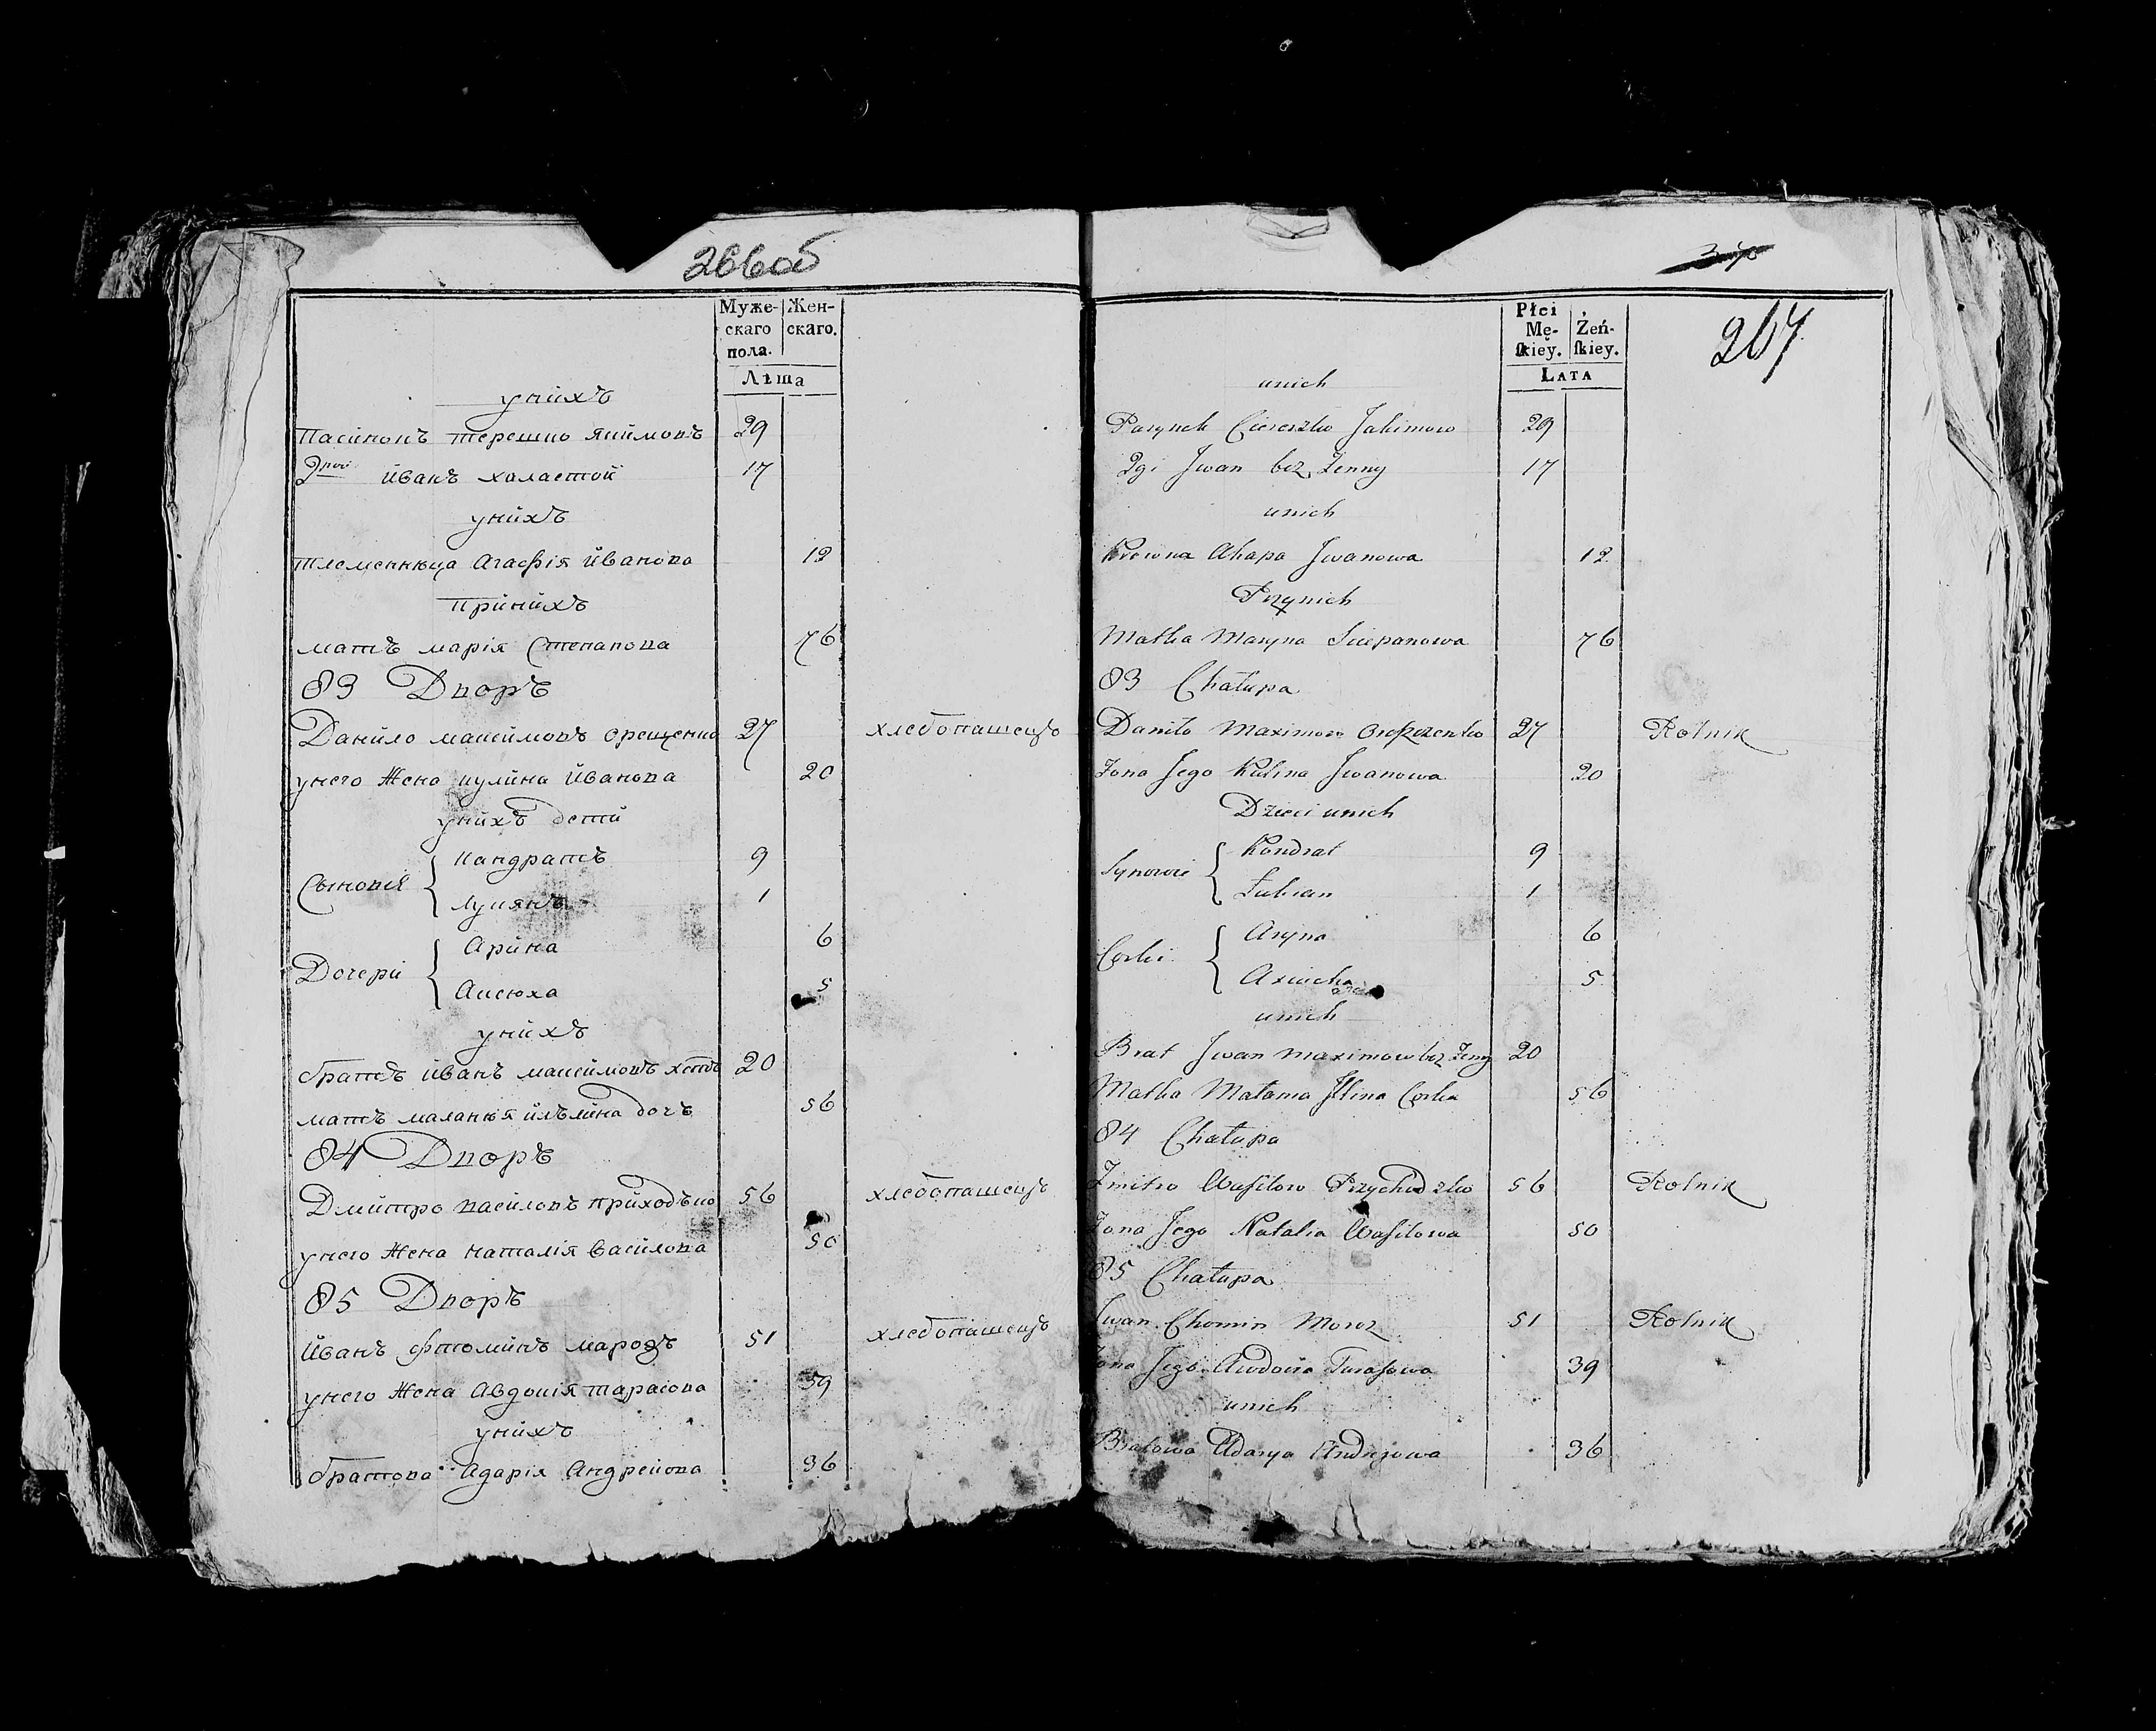 266об
Муже-
скаго
пола.
Жен-
скаго.
Лѣта
унихъ
пасинокъ терешко якимовъ 29
2гой йванъ халастой 17
унихъ
племенница Агафія йванова 12
принихъ
матъ марія Степанова 76
83 Дворъ
Данило максимовъ орещенко 27 хлебопашецъ
унего Жена кулина йванова 20
унихъ дети
Сыновія { кандратъ 9
лукянъ 1
Дочери { Арина 6
Аксюха 5
унихъ
братъ йванъ максимовъ 20
матъ маланія илъина дочъ 56
84 Дворъ
Дмитро василовъ приходъко 56 хлебопашецъ
унего Жена наталія василова 50
85 Дворъ
йванъ фтоминъ марозъ 51 хлебопашецъ
унего Жена Авдокія тарасова 39
унихъ
братова Адарія Андрейова 36
267
Płci
Mę-
ſkiey.
Żeń-
ſkiey.
Lata
unich
Pasynek Ciereszko Jakimow 29
2gi Jwan bez Zenny 17
unich
Krewna Ahapa Jwanowa 12
Przynich
Matka Maryna Sciepanowa 76
83 Chałupa
Daniło Maximow 27 Rolnik
Zona Jego Kulina Jwanowa 20
Dzieci unich
Synowie { Kondrat 9
Łukian 1
Corki { Aryna 6
Axiucha 5
unich
Brat Jwan Maximow bez Zeny 20
Matka Małania Jlina Corka 56
84 Chałupa
Zmitro Waſilow Przychodzko 56 Rolnik
Zona Jego Natalia Waſilowa 50
85 Chałupa
Jwan Chomin Moroz 51 Rolnik
Zona Jego Awdocia Taraſowa 39
unich
Bratowa Adarya Andrzejowa 36